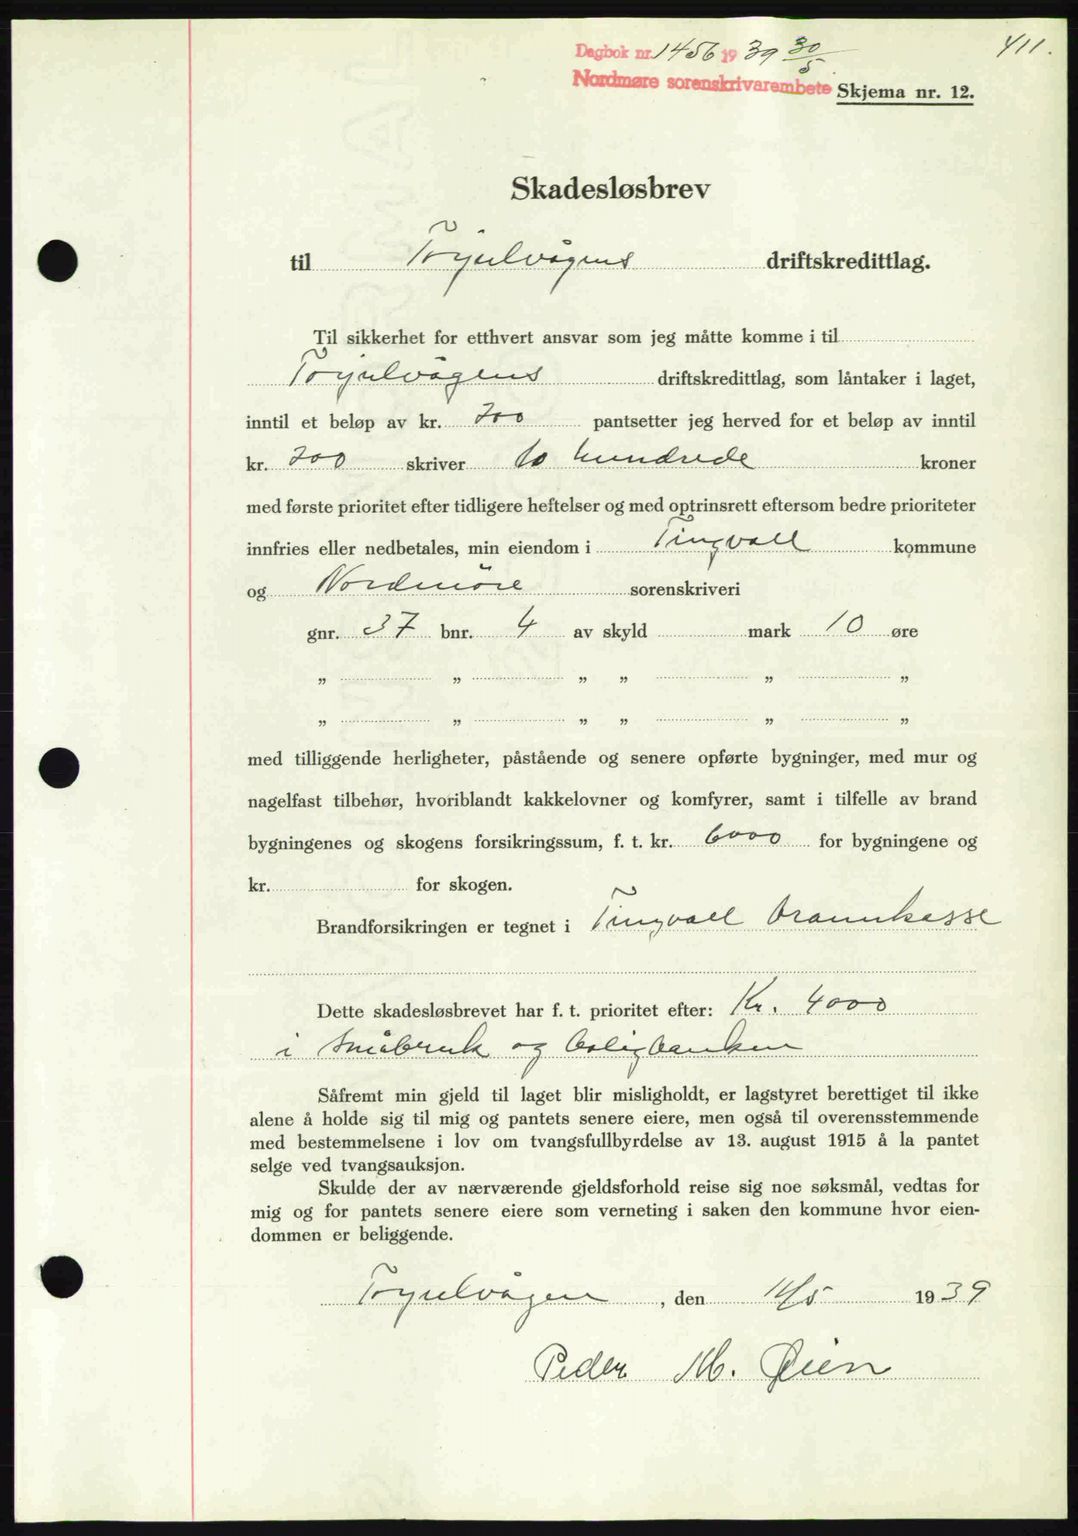 411.
Dagbok nr. 1456 1939 30/5
Nordmøre sorenskrivarembete
Skjema nr. 12.
Skadesløsbrev
til Torjulvågens driftskredittlag.
Til sikkerhet for etthvert ansvar som jeg måtte komme i til
Torjulvågens driftskredittlag, som låntaker i laget,
inntil et beløp av kr. 200 pantsetter jeg herved for et beløp av inntil
kr. 200 skriver to hundrede kroner
med første prioritet efter tidligere heftelser og med optrinsrett eftersom bedre prioriteter
innfries eller nedbetales, min eiendom i Tingvoll kommune
og Nordmöre sorenskriveri
gnr. 37 bnr. 4 av skyld mark 10 øre
„ „ „ „ „ „
„ „ „ „ „ „
med tilliggende herligheter, påstående og senere opførte bygninger, med mur og
nagelfast tilbehør, hvoriblandt kakkelovner og komfyrer, samt i tilfelle av brand
bygningenes og skogens forsikringssum, f. t. kr. 6000 for bygningene og
kr. for skogen.
Brandforsikringen er tegnet i Tingvoll brannkasse
Dette skadesløsbrevet har f. t. prioritet efter: Kr. 4000
i Småbruk og boligbanken
Såfremt min gjeld til laget blir misligholdt, er lagstyret berettiget til ikke
alene å holde sig til mig og pantets senere eiere, men også til overensstemmende
med bestemmelsene i lov om tvangsfullbyrdelse av 13. august 1915 å la pantet
selge ved tvangsauksjon.
Skulde der av nærværende gjeldsforhold reise sig noe søksmål, vedtas for
mig og for pantets senere eiere som verneting i saken den kommune hvor eien-
dommen er beliggende.
Torjulvågen, den 14/5 1939
Peder M. Øien